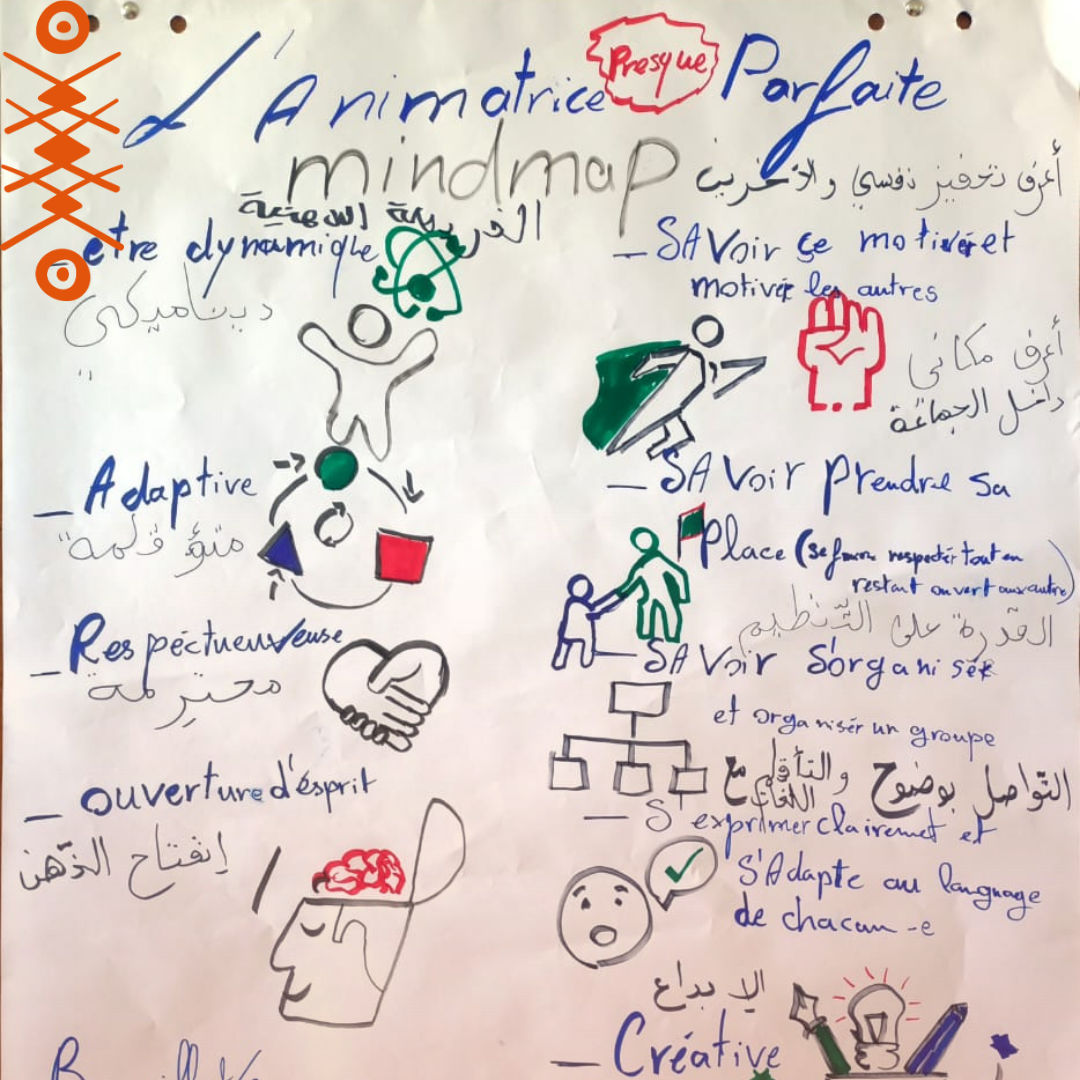 L'Animatrice Presque Parfaite
mindmap
الخريطة الذهنية
_ etre dynamique
ديناميكي
_ Adaptive
متؤقلمة
_ Respéctueux/euse
محترمة
_ ouverture d'ésprit
إنفتاح الذّهن
أعرف نحفيز نفسي و لاخرين
_ SAVoir se motivér et
motivér les autres
أعرف مكاني
داخل الجماعة
_ SAVoir prendre sa
Place (se faire respecter tout en
restant ouvert aux autre)
القدرة على التّنظيم
_ SAVoir S'organisér
et organisér un groupe
التّواصل بوضوح و التأقلم مع
اللغات
_ S'exprimer clairemet et
S'Adapte au language
de chacun-e
الإبداع
_ Créative